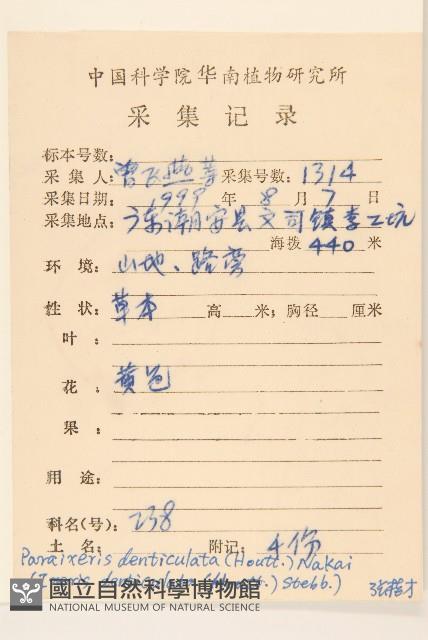 中国科学院华南植物研究所
采集记录
标本号数:
采集人: 曾飞燕等 采集号数: 1314
采集日期: 1999 年 8 月 7 日
采集地点: 广东潮安县文祠镇李工坑
海拨 440 米
环境: 山地、路旁
性状: 草本 高 米; 胸径 厘米
叶:
花: 黄色
果:
用途:
科名(号): 238
土名: 附记: 4份
Paraixeris denticulata (Houtt.) Nakai
(Ixeris denticulata (Houtt.) Stebb.)
國立自然科學博物館
NATIONAL MUSEUM OF NATURAL SCIENCE